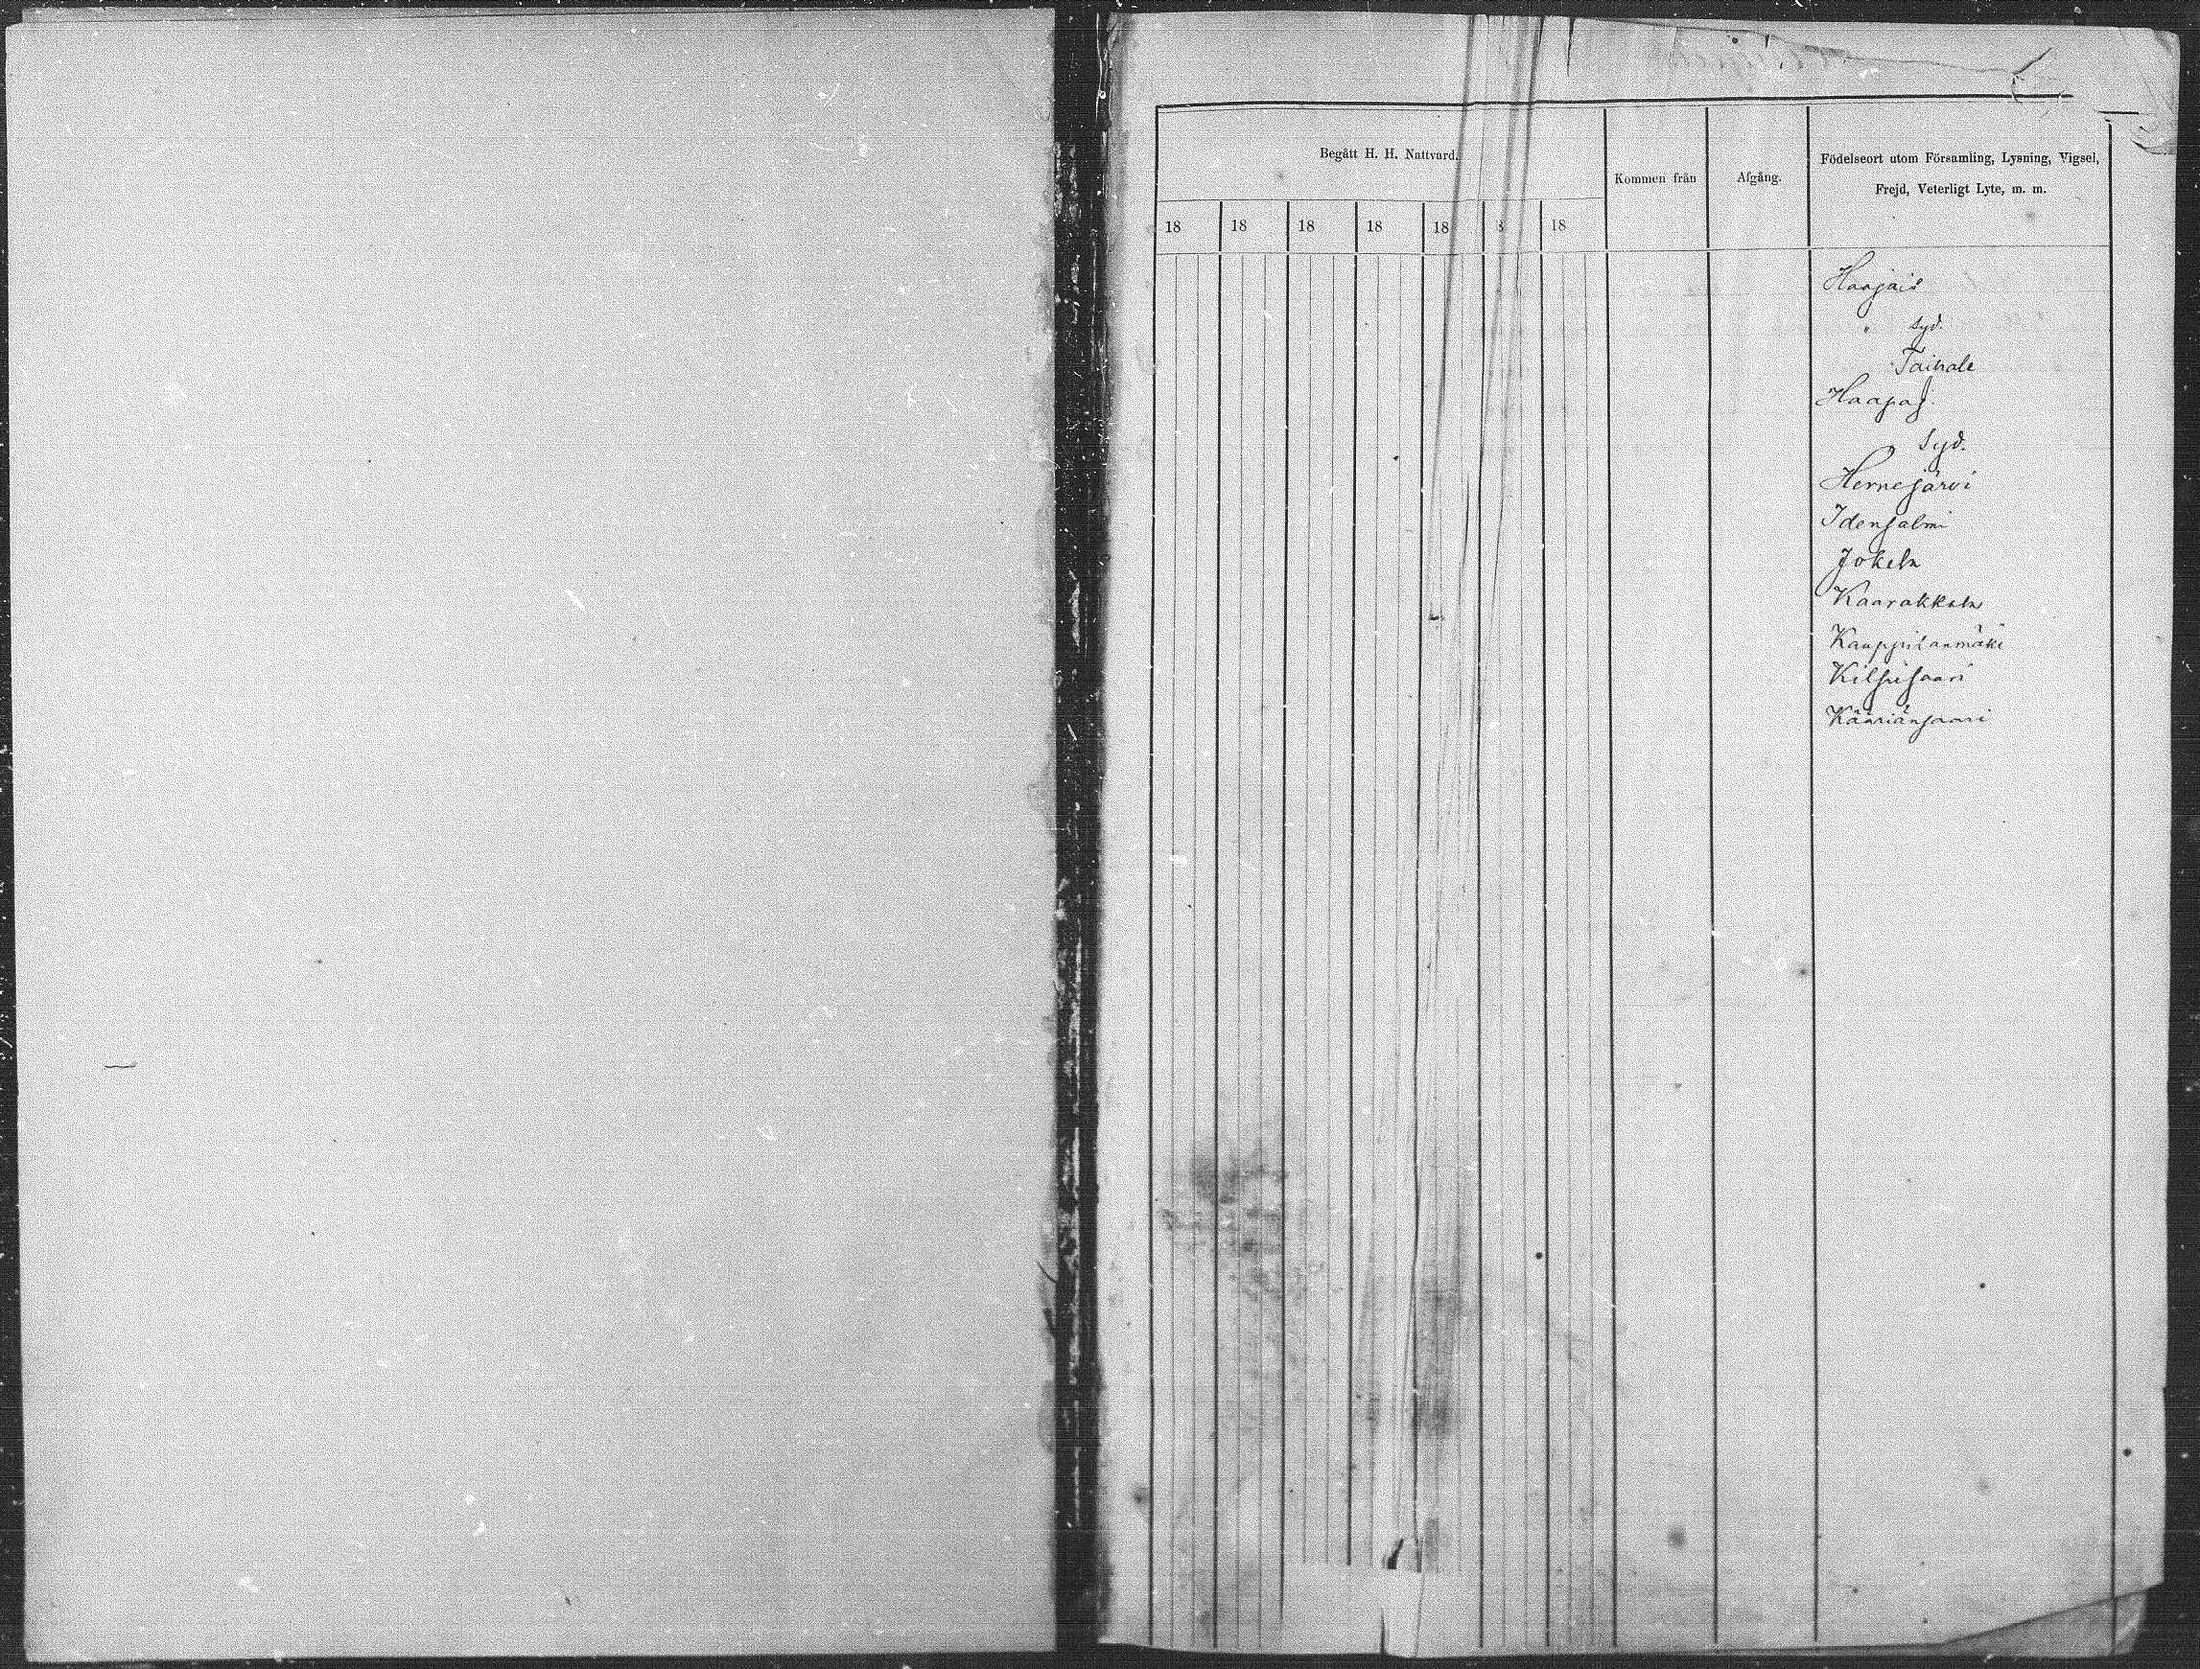 Begått H. H. Nattvard.
Kommen från
Afgång.
Födelseort utom Församling, Lysning, Vigsel,
Frejd, Veterligt Lyte, m. m.
18 18 18 18 18 8 18
Haajais
" syd.
Taihale
Haapaj.
Syd.
Hernejärvi
Idensalmi
Jokela
Kaarakkala
Kauppilanmäki
Kilpisaari
Kääriänsaari